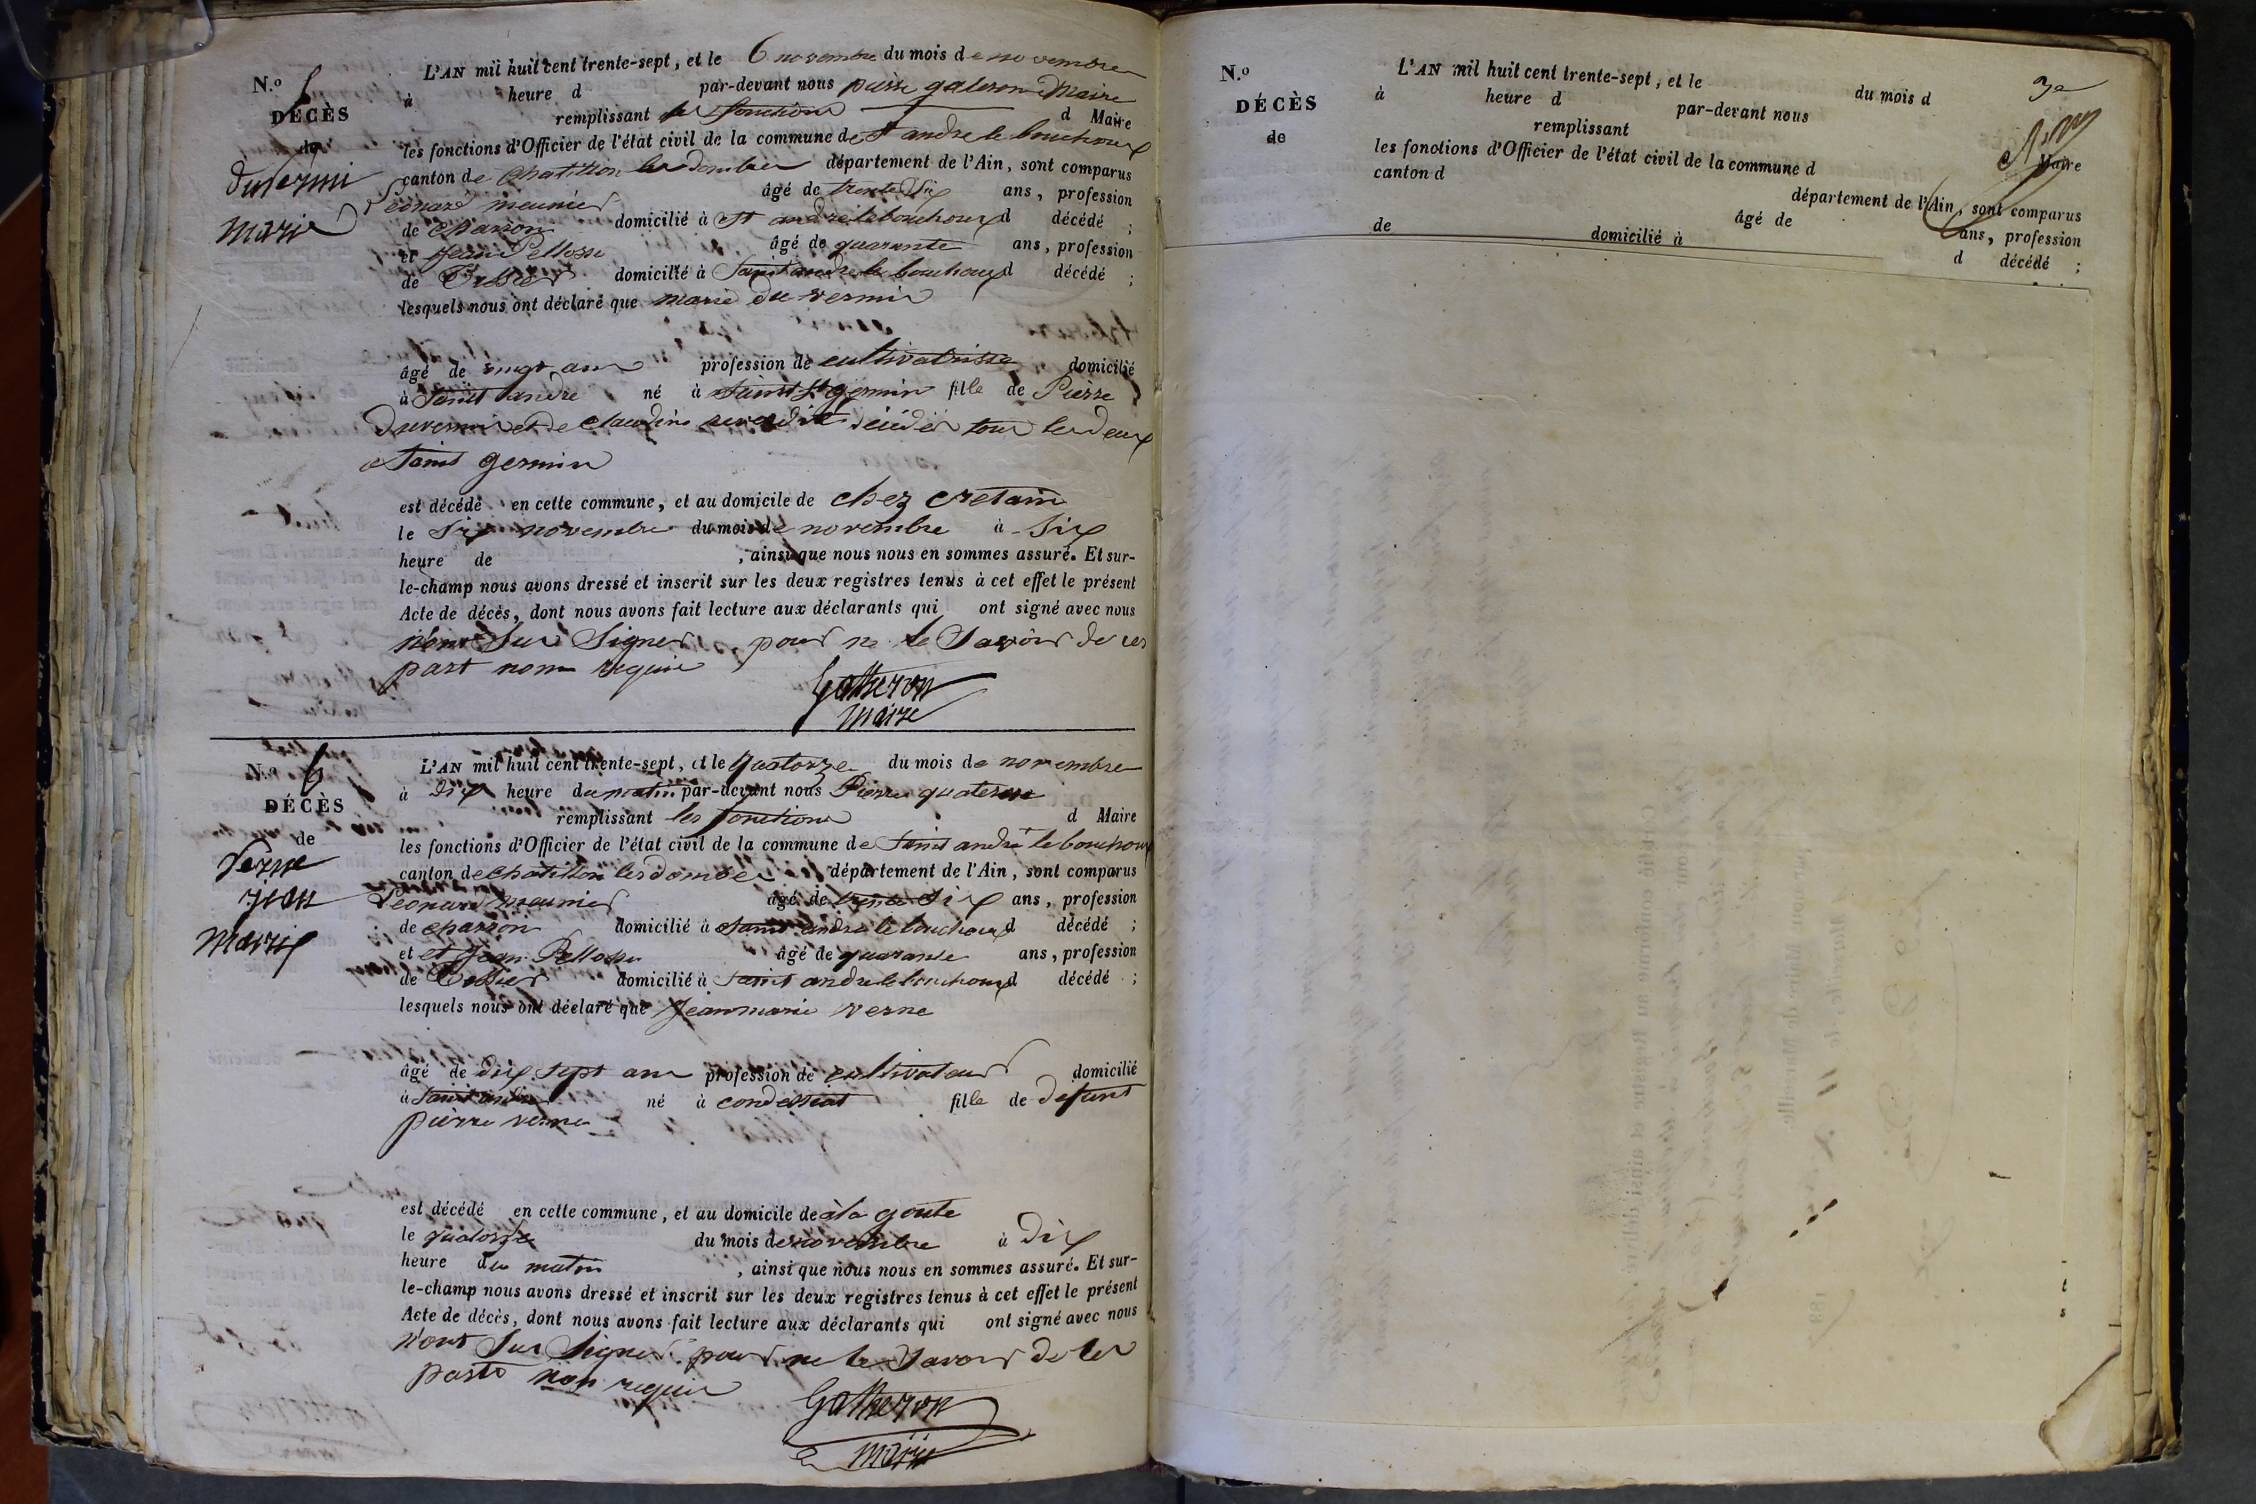 N.o
DÉCÈS
de
duvermi
Marie
L'AN mil huit cent trente-sept, et le 6 novembre du mois de novembre
à heure d par-devant nous pierre gateron Maire
remplissant les fonctions d Maire
les fonctions d'Officier de l'état civil de la commune de St andre le bouchoux
canton de Chatillon les dombes département de l'Ain, sont comparus
Leonard meunier âgé de trente Six ans, profession
de charron domicilié à St andre le bouchoux d décédé ;
et jean Pellosse âgé de quarante ans, profession
de domicilié à Saint andre le bouchoux d décédé ;
lesquels nous ont déclaré que marie du vermin
âgé de vingt ans profession de cultivatrisse domicilié
à Saint andre né à Saint St germin fille de Pierre
duvermin et de claudine décédés tous les deux
a Saint germin
est décédé en cette commune, et au domicile de chez cretain
le Six novembre du mois de novembre à Six
heure de , ainsi que nous nous en sommes assuré. Et sur-
le-champ nous avons dressé et inscrit sur les deux registres tenus à cet effet le présent
Acte de décès, dont nous avons fait lecture aux déclarants qui ont signé avec nous
n'ont Sur Signer pour ne le Savoir de ces
part nom requis
Gatheron
Maire
N.o 6
DÉCÈS
de
Verne
jean
Marie
L'AN mil huit cent trente-sept, et le quatorze du mois de novembre
à dix heure du matin par-devant nous Pierre
remplissant les fonctions d Maire
les fonctions d'Officier de l'état civil de la commune de Saint andre le bouchoux
canton de chatillon les dombes département de l'Ain, sont comparus
Leonard meunier âgé de trente Six ans, profession
de charron domicilié à Saint andre le bouchoux d décédé ;
et et jean Pellosse âgé de quarante ans, profession
de domicilié à Saint andre le bouchoux d décédé ;
lesquels nous ont déclaré que jean marie verne
âgé de dix Sept ans profession de cultivateur domicilié
à Saint andre né à condessiat fille de defunt
pierre verne
est décédé en cette commune, et au domicile de à la goute
le quatorze du mois de novembre à dix
heure du matin , ainsi que nous nous en sommes assuré. Et sur-
le-champ nous avons dressé et inscrit sur les deux registres tenus à cet effet le présent
Acte de décès, dont nous avons fait lecture aux déclarants qui ont signé avec nous
n'ont Sur Signer pour ne le Savoir de les
parts non requis
Gatheron
Maire
N.o
DÉCÈS
de
L'AN mil huit cent trente-sept, et le du mois d
à heure d par-devant nous
remplissant Maire
les fonctions d'Officier de l'état civil de la commune d
canton d département de l'Ain, sont comparus
âgé de ans, profession
de domicilié à d décédé ;